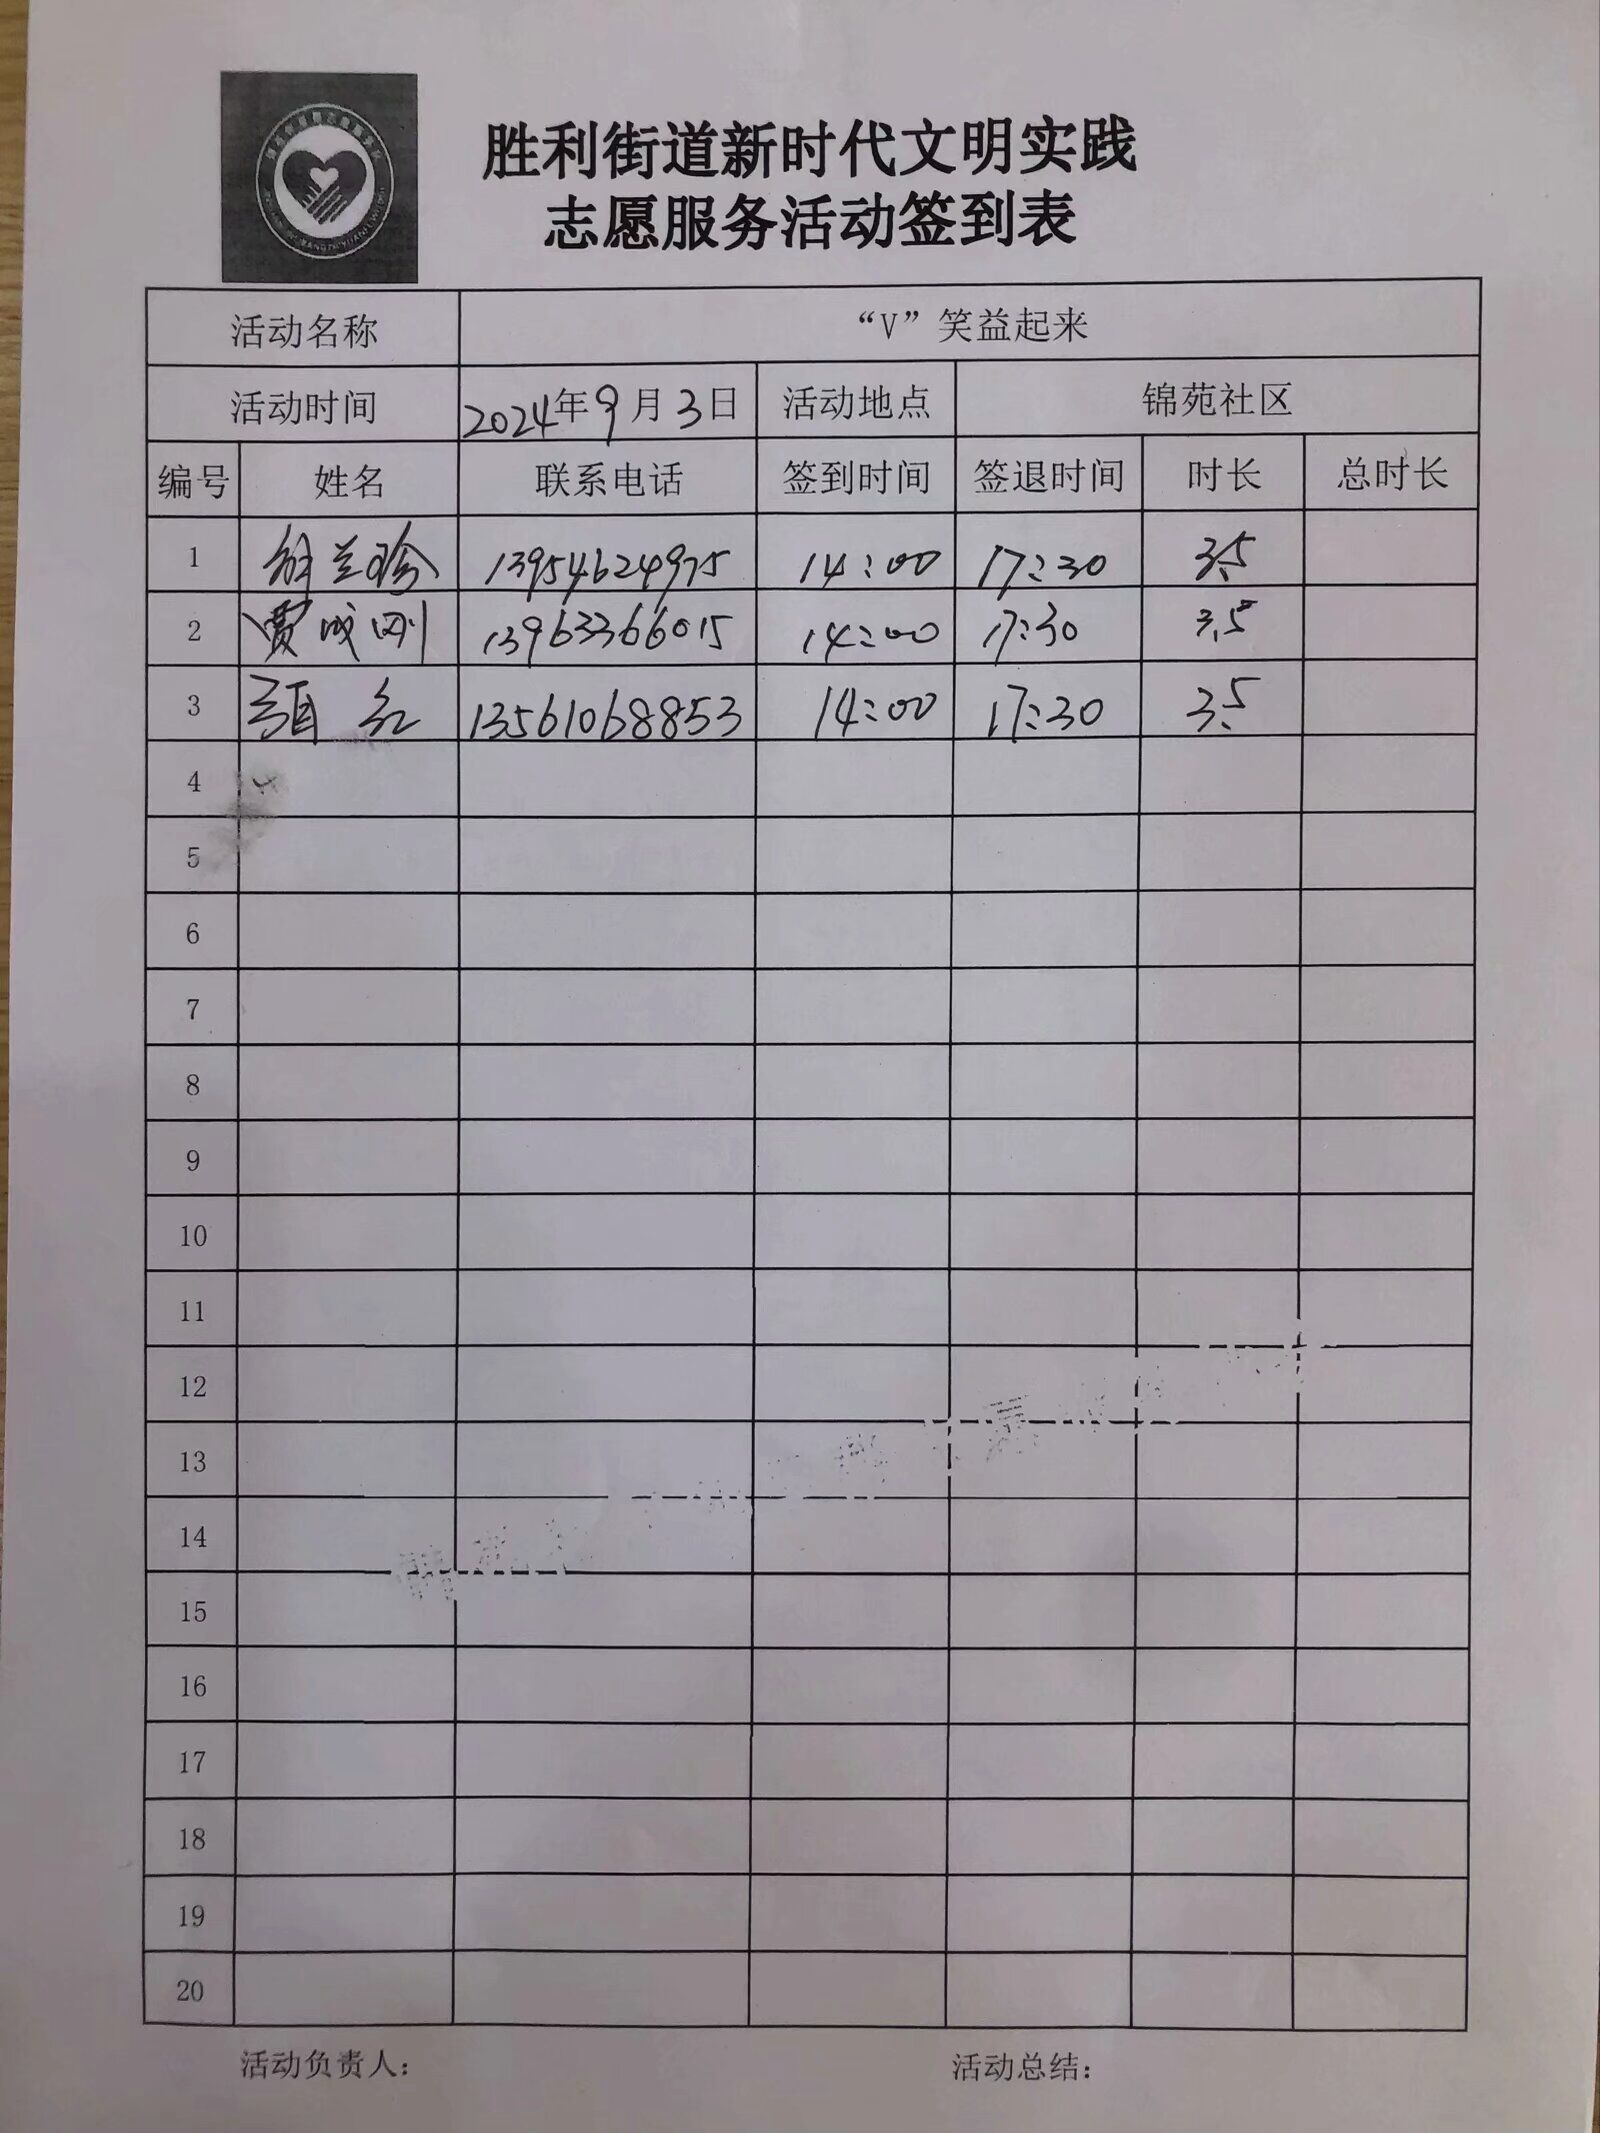 胜利街道新时代文明实践
志愿服务活动签到表
活动名称 “V”笑益起来
活动时间 2024年9月3日 活动地点 锦苑社区
编号 姓名 联系电话 签到时间 签退时间 时长 总时长
1 兰珍 13954624975 14:00 17:30 3.5
2 贾成刚 13963366015 14:00 17:30 3.5
3 红 13561068853 14:00 17:30 3.5
4
5
6
7
8
9
10
11
12
13
14
15
16
17
18
19
20
活动负责人: 活动总结: